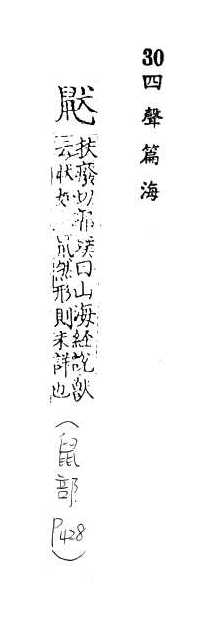 30四聲篇海
鼣
扶廢切郭璞曰山海經說獸
云狀如鼠然形則未詳也
(鼠部 P428)